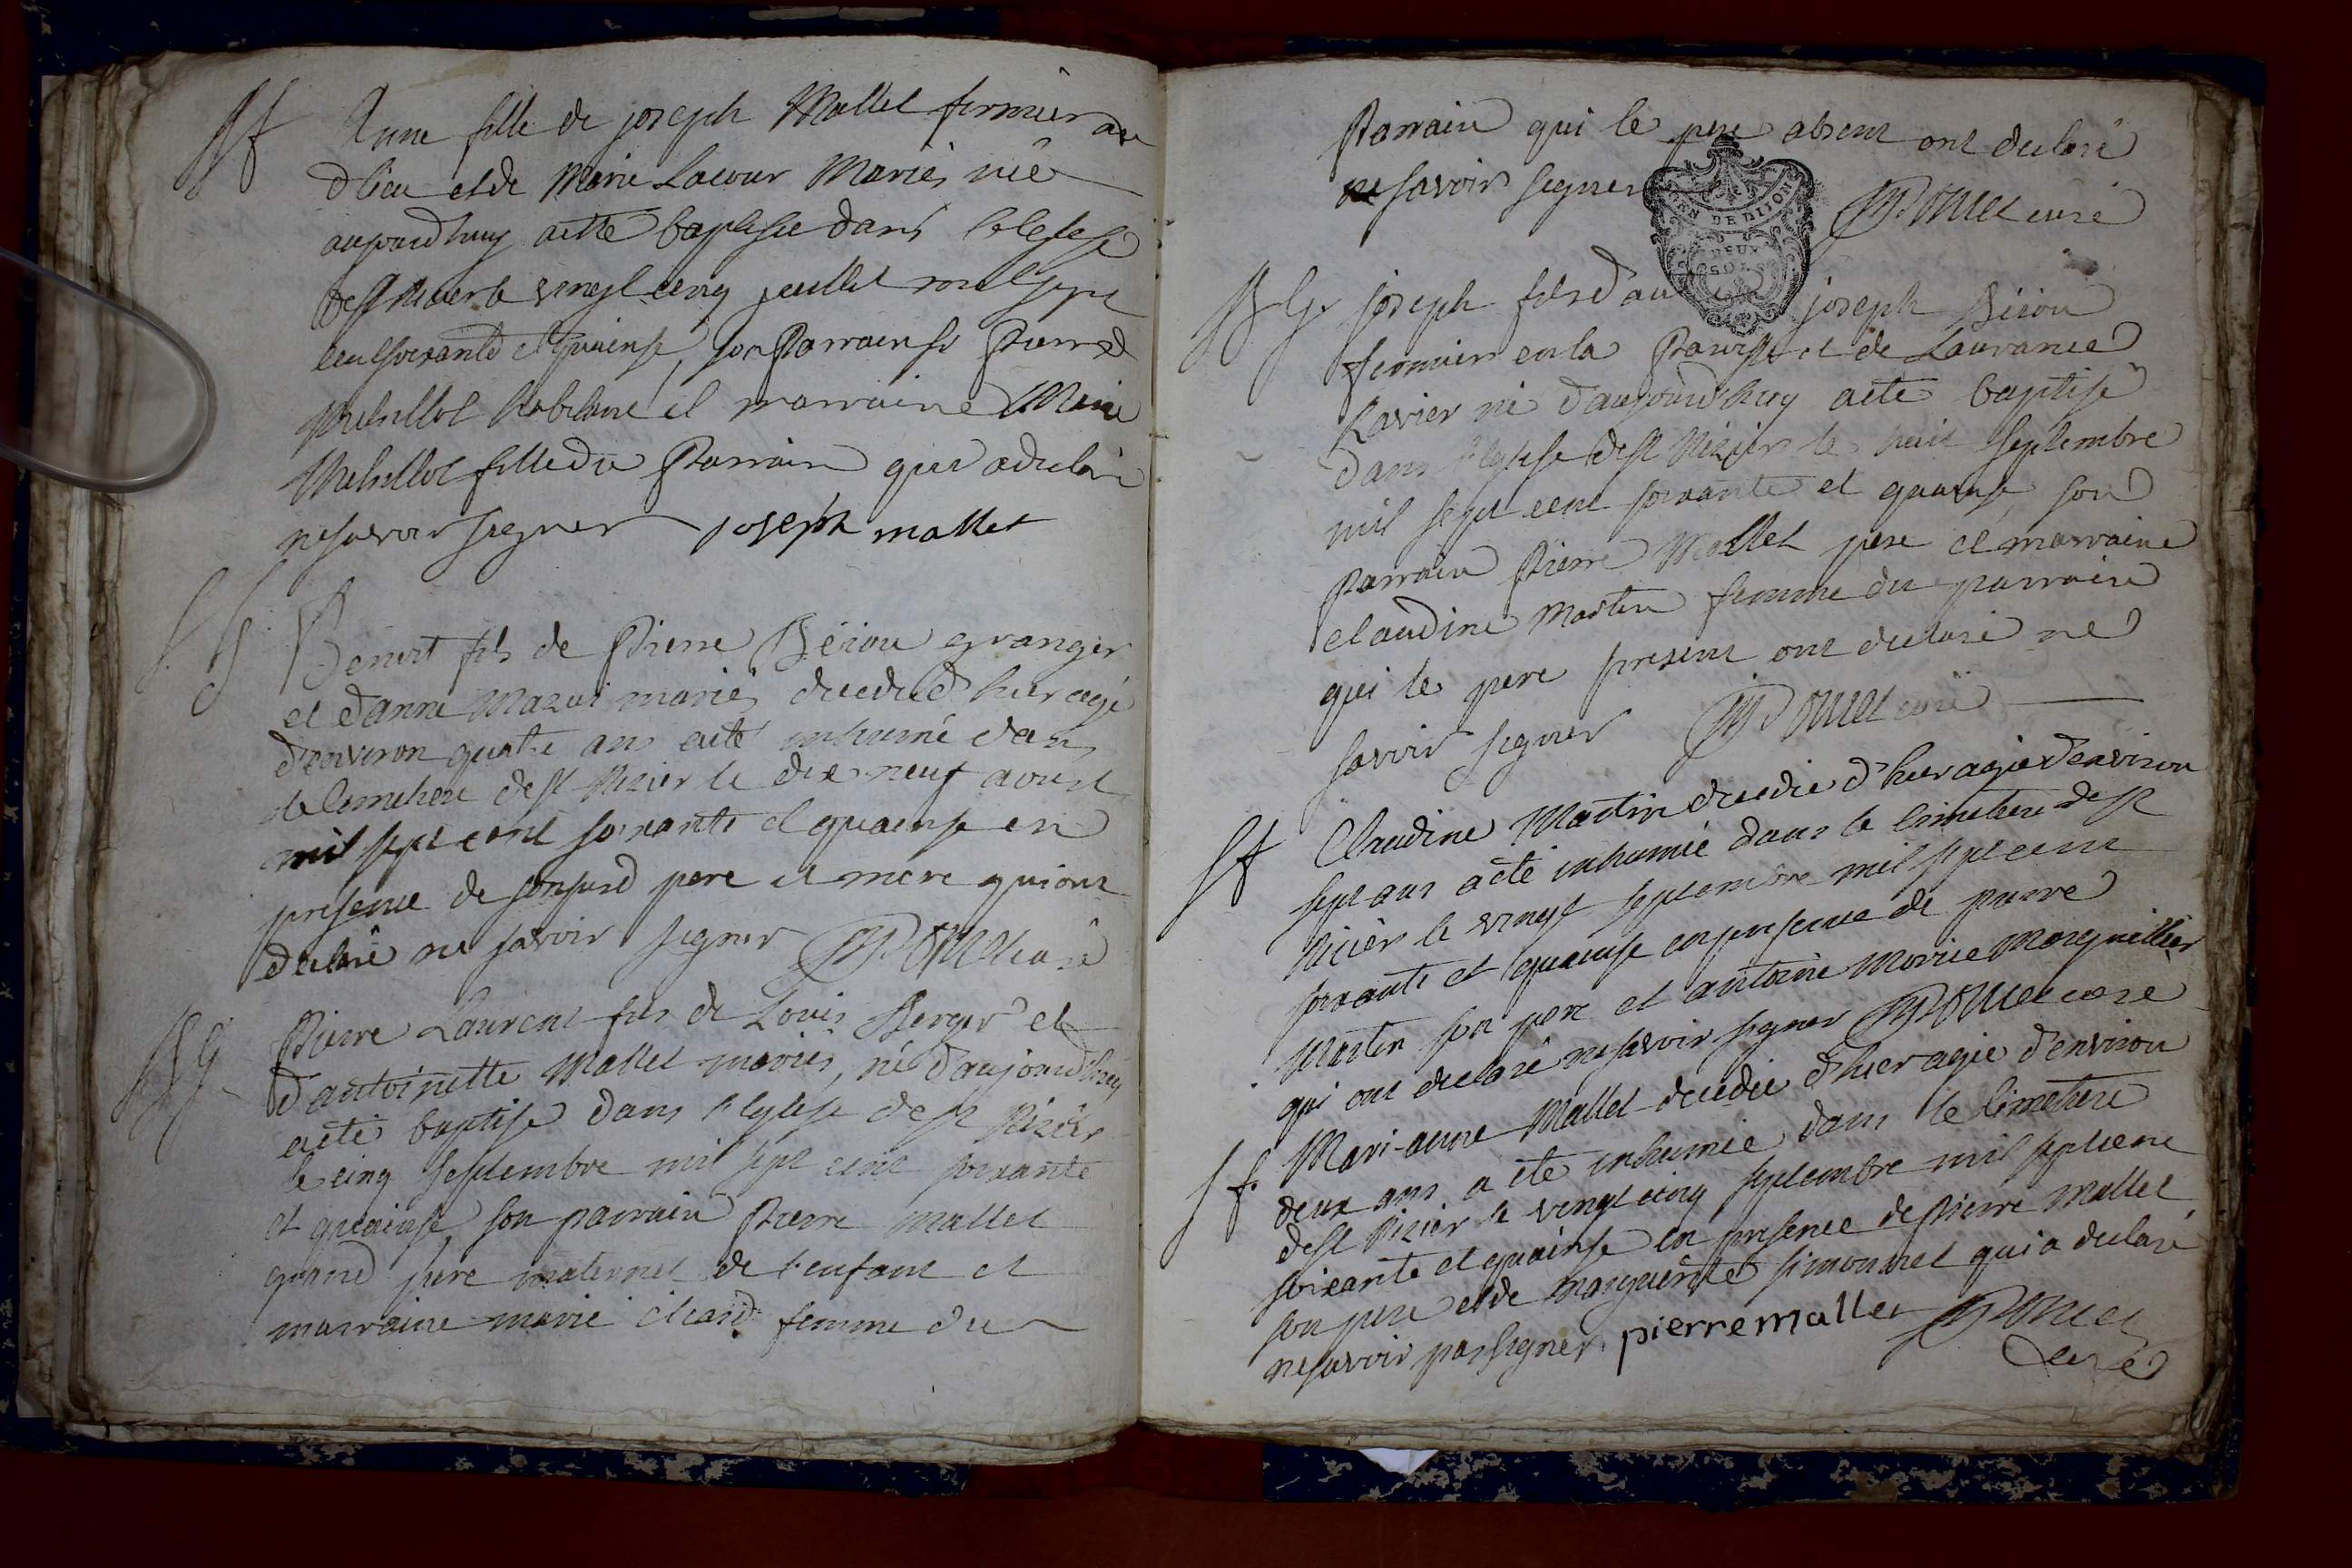 Bf Anne fille de joseph Mallet fermier au
dlieu et de Marie Lacour Mariés née
aujourdhuy aetté baptisée dans leglise
de st Nizier le vingt cinq juillet mil sept
cent soixante et quinse, son Parrain fr Pierre
habitant et marraine Marie
fille du Parrain qui a declaré
ne savoir signer joseph mallet
Sg Benoit fils de Pierre Bériou granger
et d'anne Mazui mariés decedé d'hier agé
d'environ quatre ans aeté inhumé dans
le Cimetiere de st Nizier le dix neuf aoust
mil sept cent soixante et quainse en
presence de sonsusd pere et mere qui ont
declaré ne savoir signer curé
Bg Pierre Laurent fils de Louis Berger et
d'antoinette Mallet mariés, né d'aujourd'huy
aeté baptisé dans l'Eglise de st Nizier
le cinq septembre mil sept cent soixante
et quainse, son parrain Pierre Mallet
grand pere maternel de l'enfant et
marraine marie femme du
Parrain qui le pere absent ont declaré
ne savoir signer curé
GEN DE DIJON
DEUX
SOLS
B g. joseph fils d'au joseph Bériou
fermier en la Paroisse et de Laurance
Ravier né d'aujourd'huy aeté baptisé
dans l'Eglise de st Nizier le huit septembre
mil sept cent soixante et quainse, son
Parrain Pierre Mallet pere et marraine
claudine Martin femme du parrain
qui le pere present ont declaré ne
savoir signer curé
Sf Claudine Martin decedée d'hier agée d'environ
sept ans aeté inhumée dans le Cimetiere de st
Nizier le vingt septembre mil sept cent
soixante et quainse en presence de pierre
Martin son pere et antoine Morice Marguillier
qui ont declaré ne savoir signer curé
S f. Mari-anne Mallet decedée d'hier agée d'environ
deux ans a été inhumée dans le Cimetiere
de st Nizier le vingt cinq septembre mil sept cent
soixante et quainse en presence de Pierre Mallet
son pere et de marguerite simonnet qui a declaré
ne savoir pas signer. pierre mallet
curé